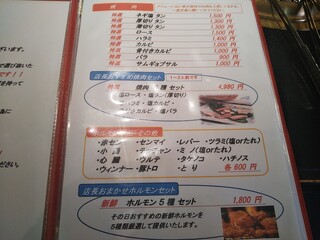 焼肉
特選 ネギ塩タン 1,500円
特選 厚切りタン 1,300円
特選 薄切りタン 1,300円
特選 ロース 1,500円
特選 ハラミ 1,400円
特選 カルビ 1,000円
特選 骨付きカルビ 1,000円
特選 バラ 900円
特選 サムギョプサル 1,000円
店長おすすめ焼肉セット
特選 焼肉 種セット 4,980円
塩ロース・塩タン(厚切り)
ミ・塩カルビ
カルビ・塩バラ
その他
・赤セン ・センマイ ・レバー ・ツラミ(塩orたれ)
・小腸 ・テッチャン ・ミノ(塩orたれ)
・心臓 ・ウルテ ・タケノコ ・ハチノス
・ウィンナー ・豚トロ ・とり 各600円
店長おまかせホルモンセット
新鮮 ホルモン5種セット 1,800円
その日おすすめの新鮮ホルモンを
5種類厳選して提供いたします。